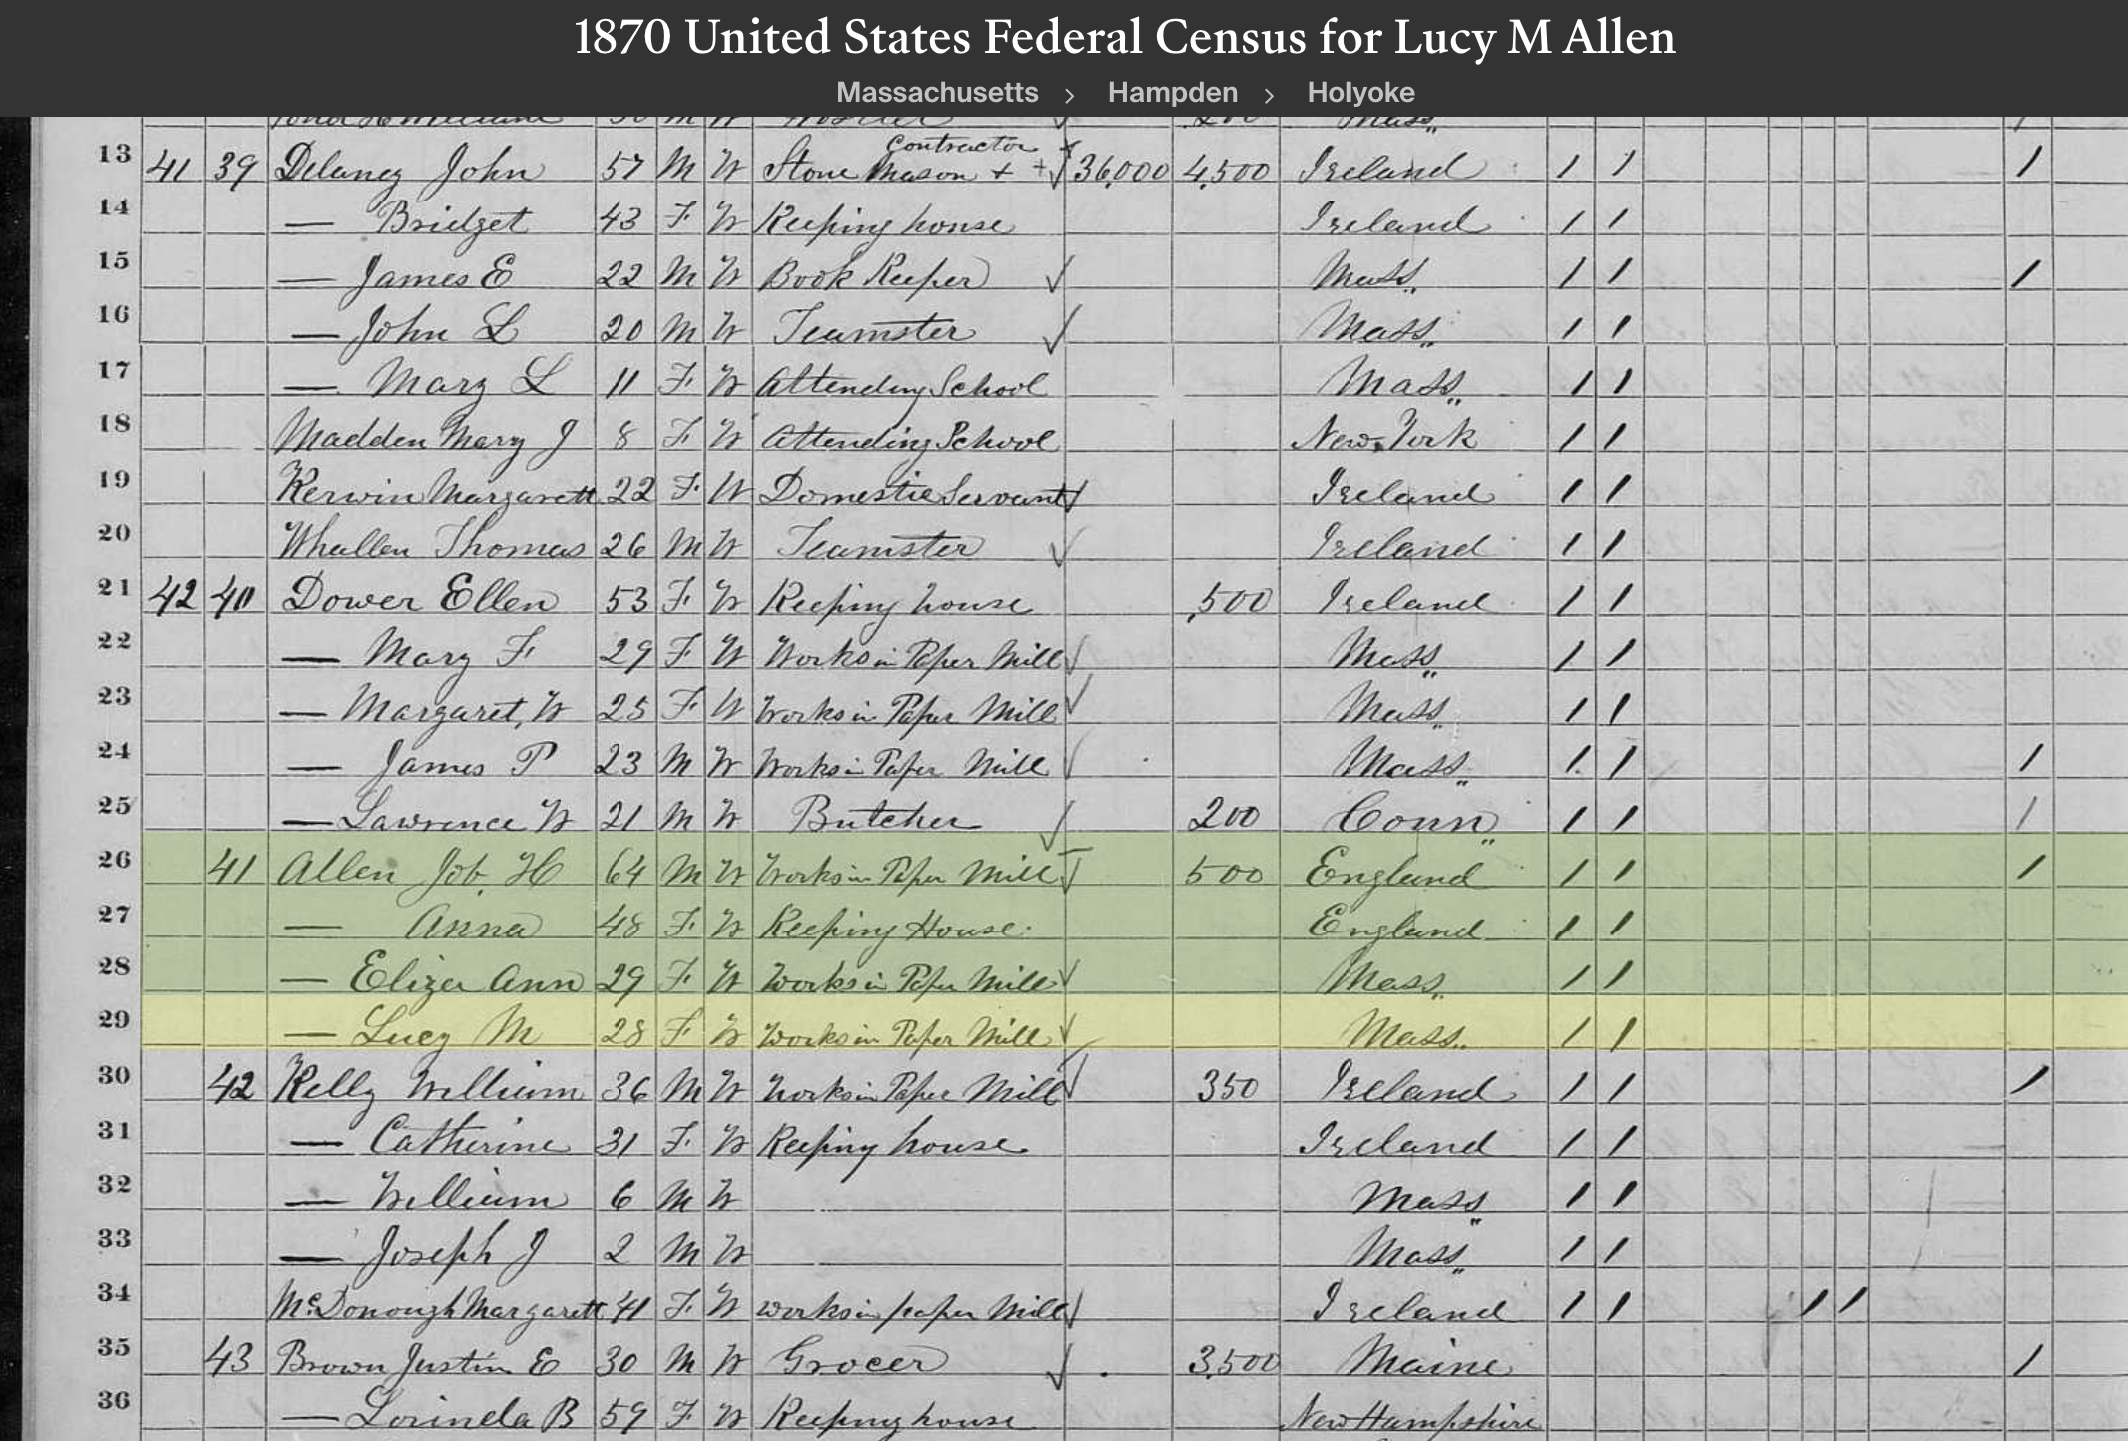 1870 United States Federal Census for Lucy M Allen
Massachusetts > Hampden > Holyoke
Contractor
13 41 39 Delaney John 57 M W Stone Mason + 36,000 4,500 Ireland 1 1 1
14 — Bridget 43 F W Keeping house Ireland 1 1
15 — James E 22 M W Book Keeper ✓ Mass. 1 1 1
16 — John L 20 M W Teamster ✓ Mass. 1 1
17 — Mary L 11 F W Attending School Mass. 1 1
18 Madden Mary J 8 F W Attending School New York 1 1
19 Kerwin Margarett 22 F W Domestic Servant ✓ Ireland 1 1
20 Whallen Thomas 26 M W Teamster ✓ Ireland 1 1
21 42 40 Dower Ellen 53 F W Keeping house 500 Ireland 1 1
22 — Mary F 29 F W Works in Paper Mill ✓ Mass. 1 1
23 — Margaret, W 25 F W Works in Paper Mill ✓ Mass. 1 1
24 — James P 23 M W Works in Paper Mill ✓ Mass. 1 1 1
25 — Lawrence W 21 M W Butcher ✓ 200 Conn. 1 1 1
26 41 Allen Job. H 64 M W Works in Paper Mill ✓ 500 England 1 1 1
27 — Anna 48 F W Keeping House. England 1 1
28 — Eliza Ann 29 F W Works in Paper Mill ✓ Mass. 1 1
29 — Lucy M 28 F W Works in Paper Mill ✓ Mass. 1 1
30 42 Kelly William 36 M W Works in Paper Mill ✓ 350 Ireland 1 1 1
31 — Catherine 31 F W Keeping house Ireland 1 1
32 — William 6 M W Mass 1 1
33 — Joseph J 2 M W Mass 1 1
34 McDonough Margarett 41 F W works in paper Mill ✓ Ireland 1 1 1 1
35 43 Brown Justin E 30 M W Grocer ✓ 3,500 Maine 1
36 — Lorinda B 59 F W Keeping house New Hampshire